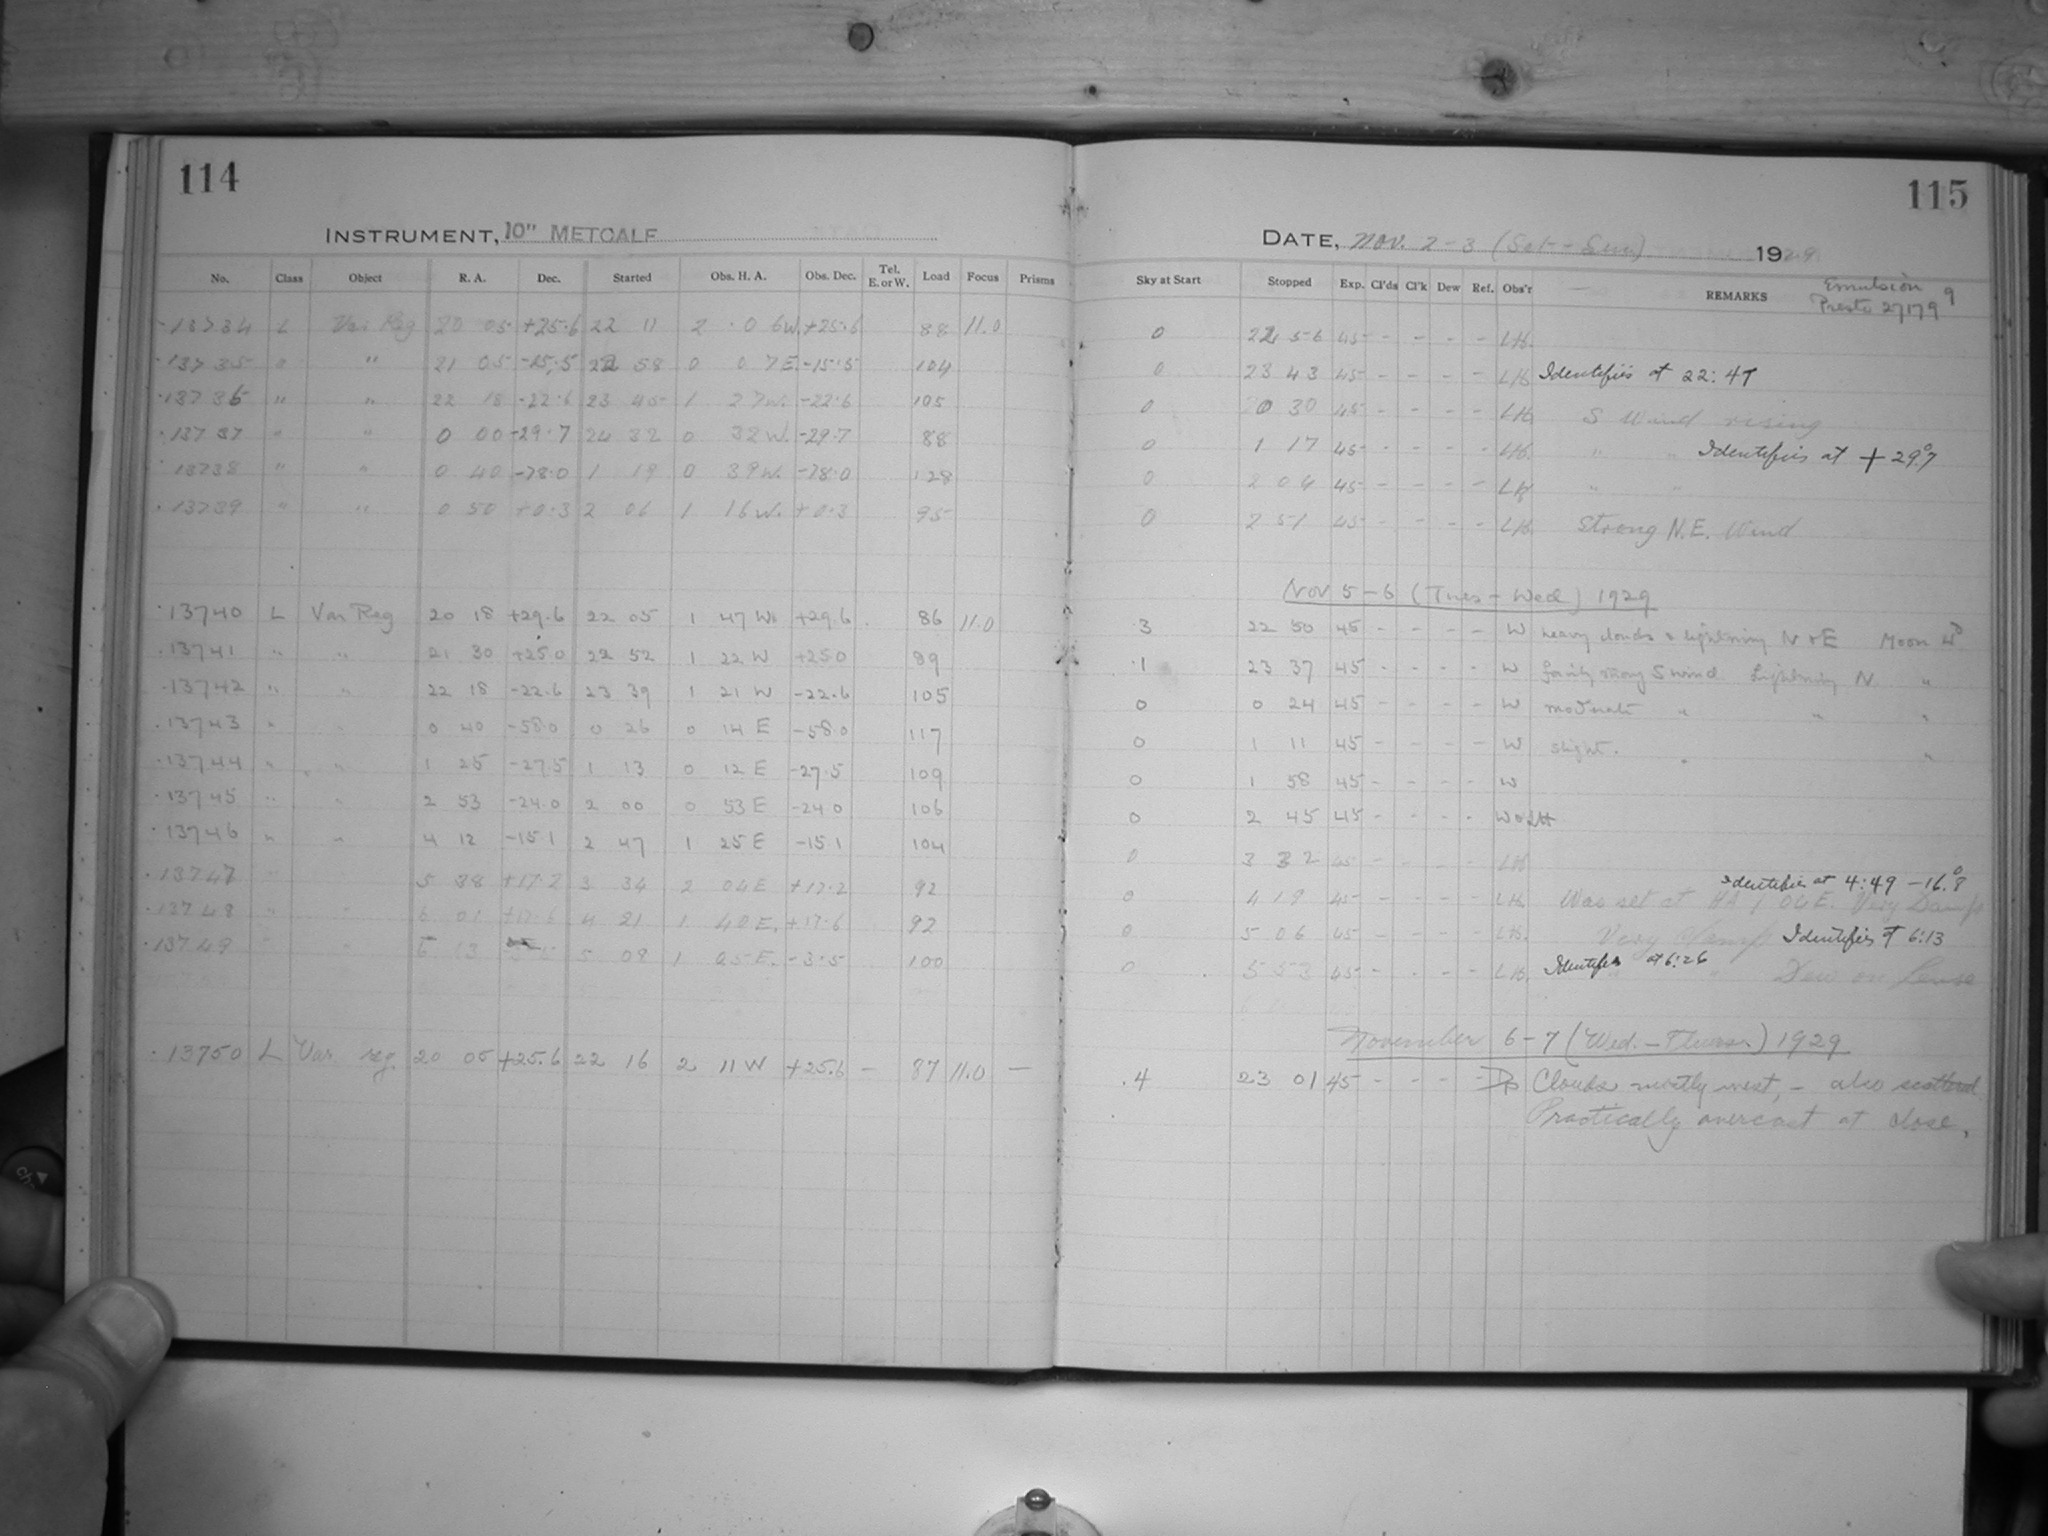 114
INSTRUMENT, 10" METCALF
No. Class Object R. A. Dec. Started Obs. H. A. Obs. Dec. Tel. E. or W. Load Focus Prisms
13734 L Var Reg 20 05 +25.6 22 11 2 06W +25.6 88 11.0
13735 " " 21 05 -25.5 22 58 0 07E -15.5 104
13736 " " 22 18 -22.6 23 45 1 27W. -22.6 105
13737 " " 0 00 -29.7 24 32 0 32W. -29.7 88
13738 " " 0 40 -78.0 1 19 0 39W. -78.0 128
13739 " " 0 50 +0.3 2 06 1 16W. +0.3 95
13740 L Var Reg 20 18 +29.6 22 05 1 47W +29.6 86 11.0
13741 " " 21 30 +25.0 22 52 1 22W +25.0 89
13742 " " 22 18 -22.6 23 39 1 21W -22.6 105
13743 " " 0 40 -58.0 0 26 0 14E -58.0 117
13744 " " 1 25 -27.5 1 13 0 12E -27.5 109
13745 " " 2 53 -24.0 2 00 0 53E -24.0 106
13746 " " 4 12 -15.1 2 47 1 25E -15.1 104
13747 " " 5 38 +17.2 3 34 2 04E +17.2 92
13748 " " 6 01 +17.6 4 21 1 40E. +17.6 92
13749 " " 6 13 5 08 1 05E. -3.5 100
13750 L Var reg. 20 05 +25.6 22 16 2 11W +25.6 — 87 11.0 —
115
DATE, Nov. 2-3 (Sat-Sun) 1929
Emulsion
Presto 27179
Sky at Start Stopped Exp. Cl'ds Cl'k Dew Ref. Obs'r REMARKS
0 22 56 45 - - - - LH.
0 23 43 45 - - - - LH. Identifies at 22:47
0 0 30 45 - - - - LH. S Wind rising
0 1 17 45 - - - - LH. " " Identifies at +29°.7
0 2 04 45 - - - - LH " "
0 2 51 45 - - - - LH. Strong N.E. Wind
Nov 5-6 (Tues-Wed) 1929
3 22 50 45 - - - - W heavy clouds & lightning N & E Moon
1 23 37 45 - - - - W fairly strong S wind Lightning N "
0 0 24 45 - - - - W moderate " " "
0 1 11 45 - - - - W slight. " "
0 1 58 45 - - - - W
0 2 45 45 - - - - W & LH
0 3 32 45 - - - - LH
Identifies at 4:49 -16°.8
0 4 19 45 - - - - LH. Was set at HA 1 04E. Very Damp
0 5 06 45 - - - - LH. Very damp Identifies at 6:13
0 5 53 45 - - - - LH. Identifies at 6:26 " Dew on Lense
November 6-7 (Wed.-Thurs.) 1929
.4 23 01 45 - - - - Clouds mostly west, - also scattered
Practically overcast at close.